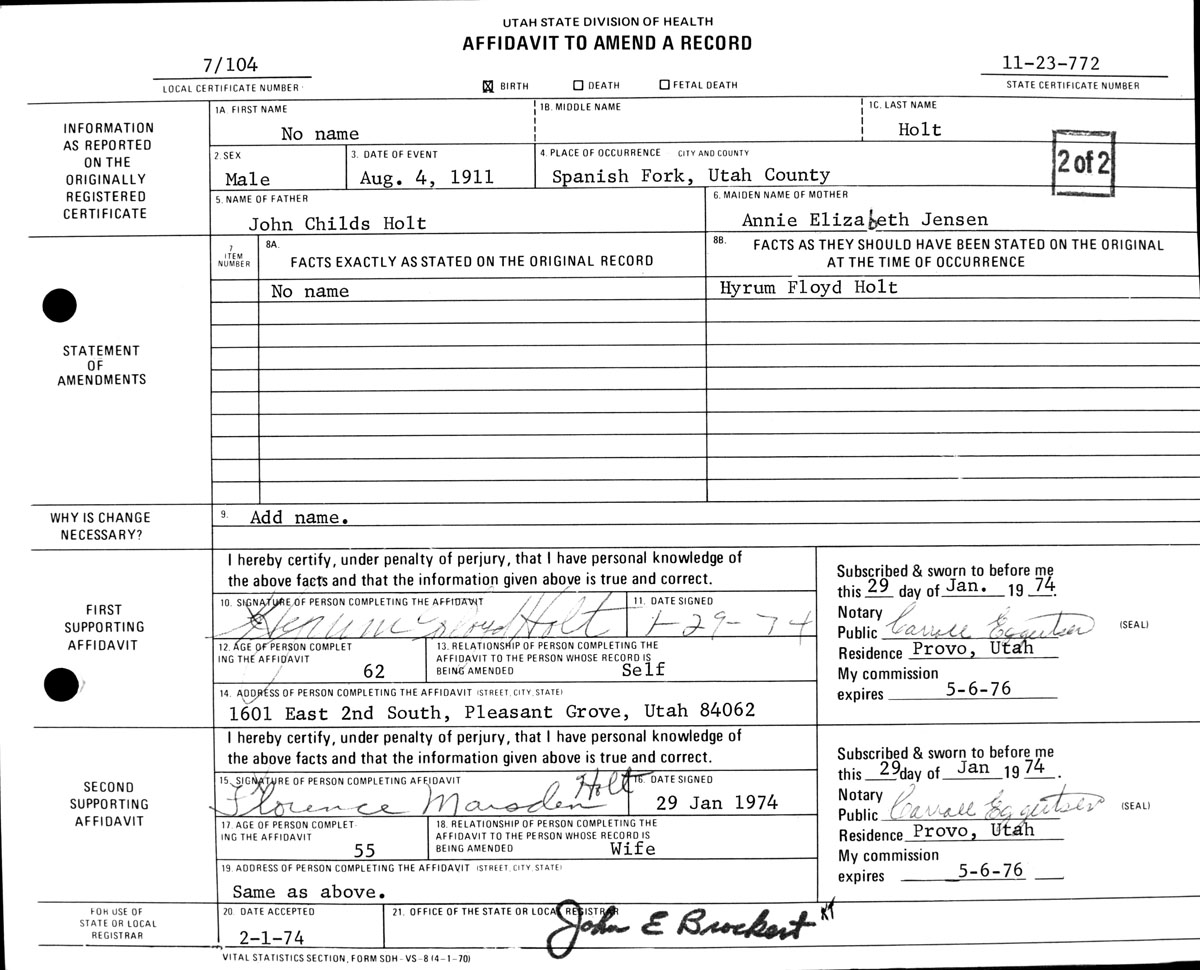 UTAH STATE DIVISION OF HEALTH
AFFIDAVIT TO AMEND A RECORD
7/104
LOCAL CERTIFICATE NUMBER
☒ BIRTH ☐ DEATH ☐ FETAL DEATH
11-23-772
STATE CERTIFICATE NUMBER
INFORMATION
AS REPORTED
ON THE
ORIGINALLY
REGISTERED
CERTIFICATE
1A. FIRST NAME
No name
1B. MIDDLE NAME
1C. LAST NAME
Holt
2. SEX
Male
3. DATE OF EVENT
Aug. 4, 1911
4. PLACE OF OCCURRENCE CITY AND COUNTY
Spanish Fork, Utah County
2 of 2
5. NAME OF FATHER
John Childs Holt
6. MAIDEN NAME OF MOTHER
Annie Elizabeth Jensen
STATEMENT
OF
AMENDMENTS
7
ITEM
NUMBER
8A.
FACTS EXACTLY AS STATED ON THE ORIGINAL RECORD
8B. FACTS AS THEY SHOULD HAVE BEEN STATED ON THE ORIGINAL
AT THE TIME OF OCCURRENCE
No name
Hyrum Floyd Holt
WHY IS CHANGE
NECESSARY?
9. Add name.
FIRST
SUPPORTING
AFFIDAVIT
I hereby certify, under penalty of perjury, that I have personal knowledge of
the above facts and that the information given above is true and correct.
10. SIGNATURE OF PERSON COMPLETING THE AFFIDAVIT
Hyrum Floyd Holt
11. DATE SIGNED
1-29-74
12. AGE OF PERSON COMPLET
ING THE AFFIDAVIT
62
13. RELATIONSHIP OF PERSON COMPLETING THE
AFFIDAVIT TO THE PERSON WHOSE RECORD IS
BEING AMENDED Self
14. ADDRESS OF PERSON COMPLETING THE AFFIDAVIT (STREET, CITY, STATE)
1601 East 2nd South, Pleasant Grove, Utah 84062
Subscribed & sworn to before me
this 29 day of Jan. 19 74.
Notary
Public Carroll Eggertsen (SEAL)
Residence Provo, Utah
My commission
expires 5-6-76
SECOND
SUPPORTING
AFFIDAVIT
I hereby certify, under penalty of perjury, that I have personal knowledge of
the above facts and that the information given above is true and correct.
15. SIGNATURE OF PERSON COMPLETING AFFIDAVIT
Florence Marsden Holt
16. DATE SIGNED
29 Jan 1974
17. AGE OF PERSON COMPLET-
ING THE AFFIDAVIT
55
18. RELATIONSHIP OF PERSON COMPLETING THE
AFFIDAVIT TO THE PERSON WHOSE RECORD IS
BEING AMENDED Wife
19. ADDRESS OF PERSON COMPLETING THE AFFIDAVIT (STREET, CITY, STATE)
Same as above.
Subscribed & sworn to before me
this 29 day of Jan 19 74.
Notary
Public Carroll Eggertsen (SEAL)
Residence Provo, Utah
My commission
expires 5-6-76
FOR USE OF
STATE OR LOCAL
REGISTRAR
20. DATE ACCEPTED
2-1-74
21. OFFICE OF THE STATE OR LOCAL REGISTRAR
John E Brockert
VITAL STATISTICS SECTION, FORM SDH-VS-8 (4-1-70)